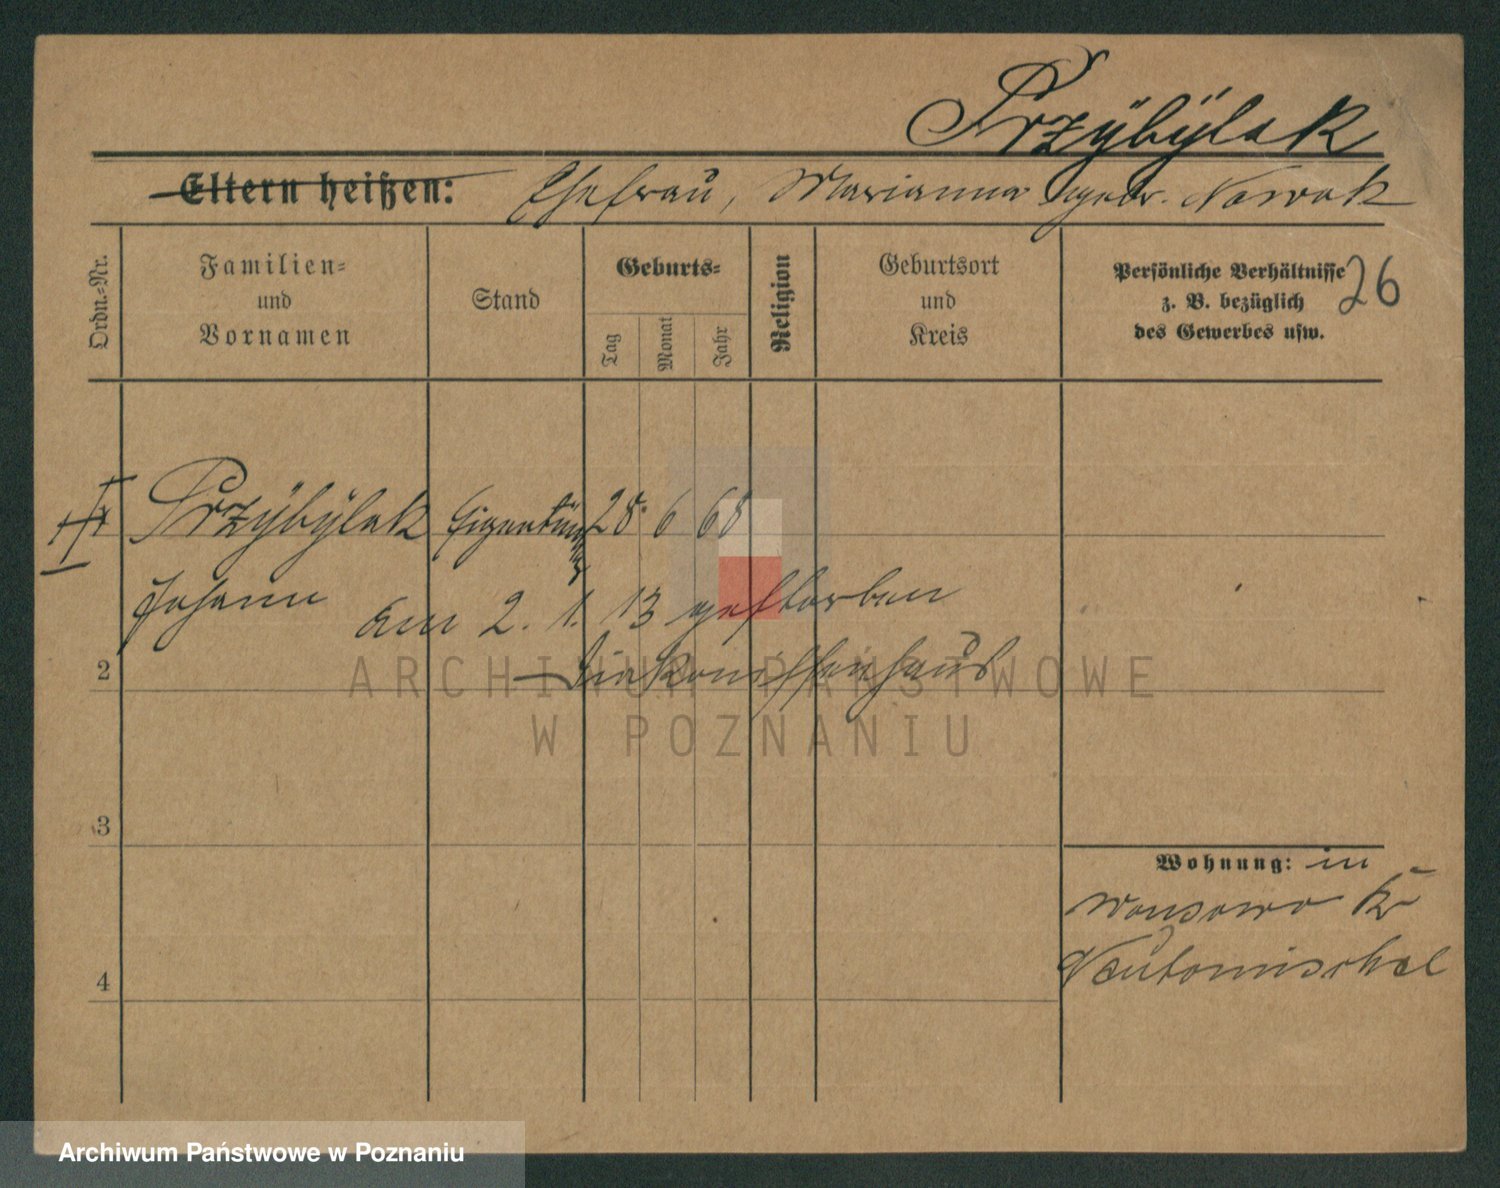 Przÿbÿlak
Eltern heißen: Ehefrau, Marianna gebr. Nowak
Ordn.-Nr.
Familien-
und
Vornamen
Stand
Geburts-
Tag
Monat
Jahr
Religion
Geburtsort
und
Kreis
Persönliche Verhältnisse
z. B. bezüglich
des Gewerbes usw.
26
Przÿbÿlak Eigentümer 28. 6 68
Johann
am 2. 1. 13 gestorben
2
Diakonissenhaus
3
4
Wohnung: in
Wonsowo Kr
Neutomischel
ARCHIWUM PAŃSTWOWE
W POZNANIU
Archiwum Państwowe w Poznaniu